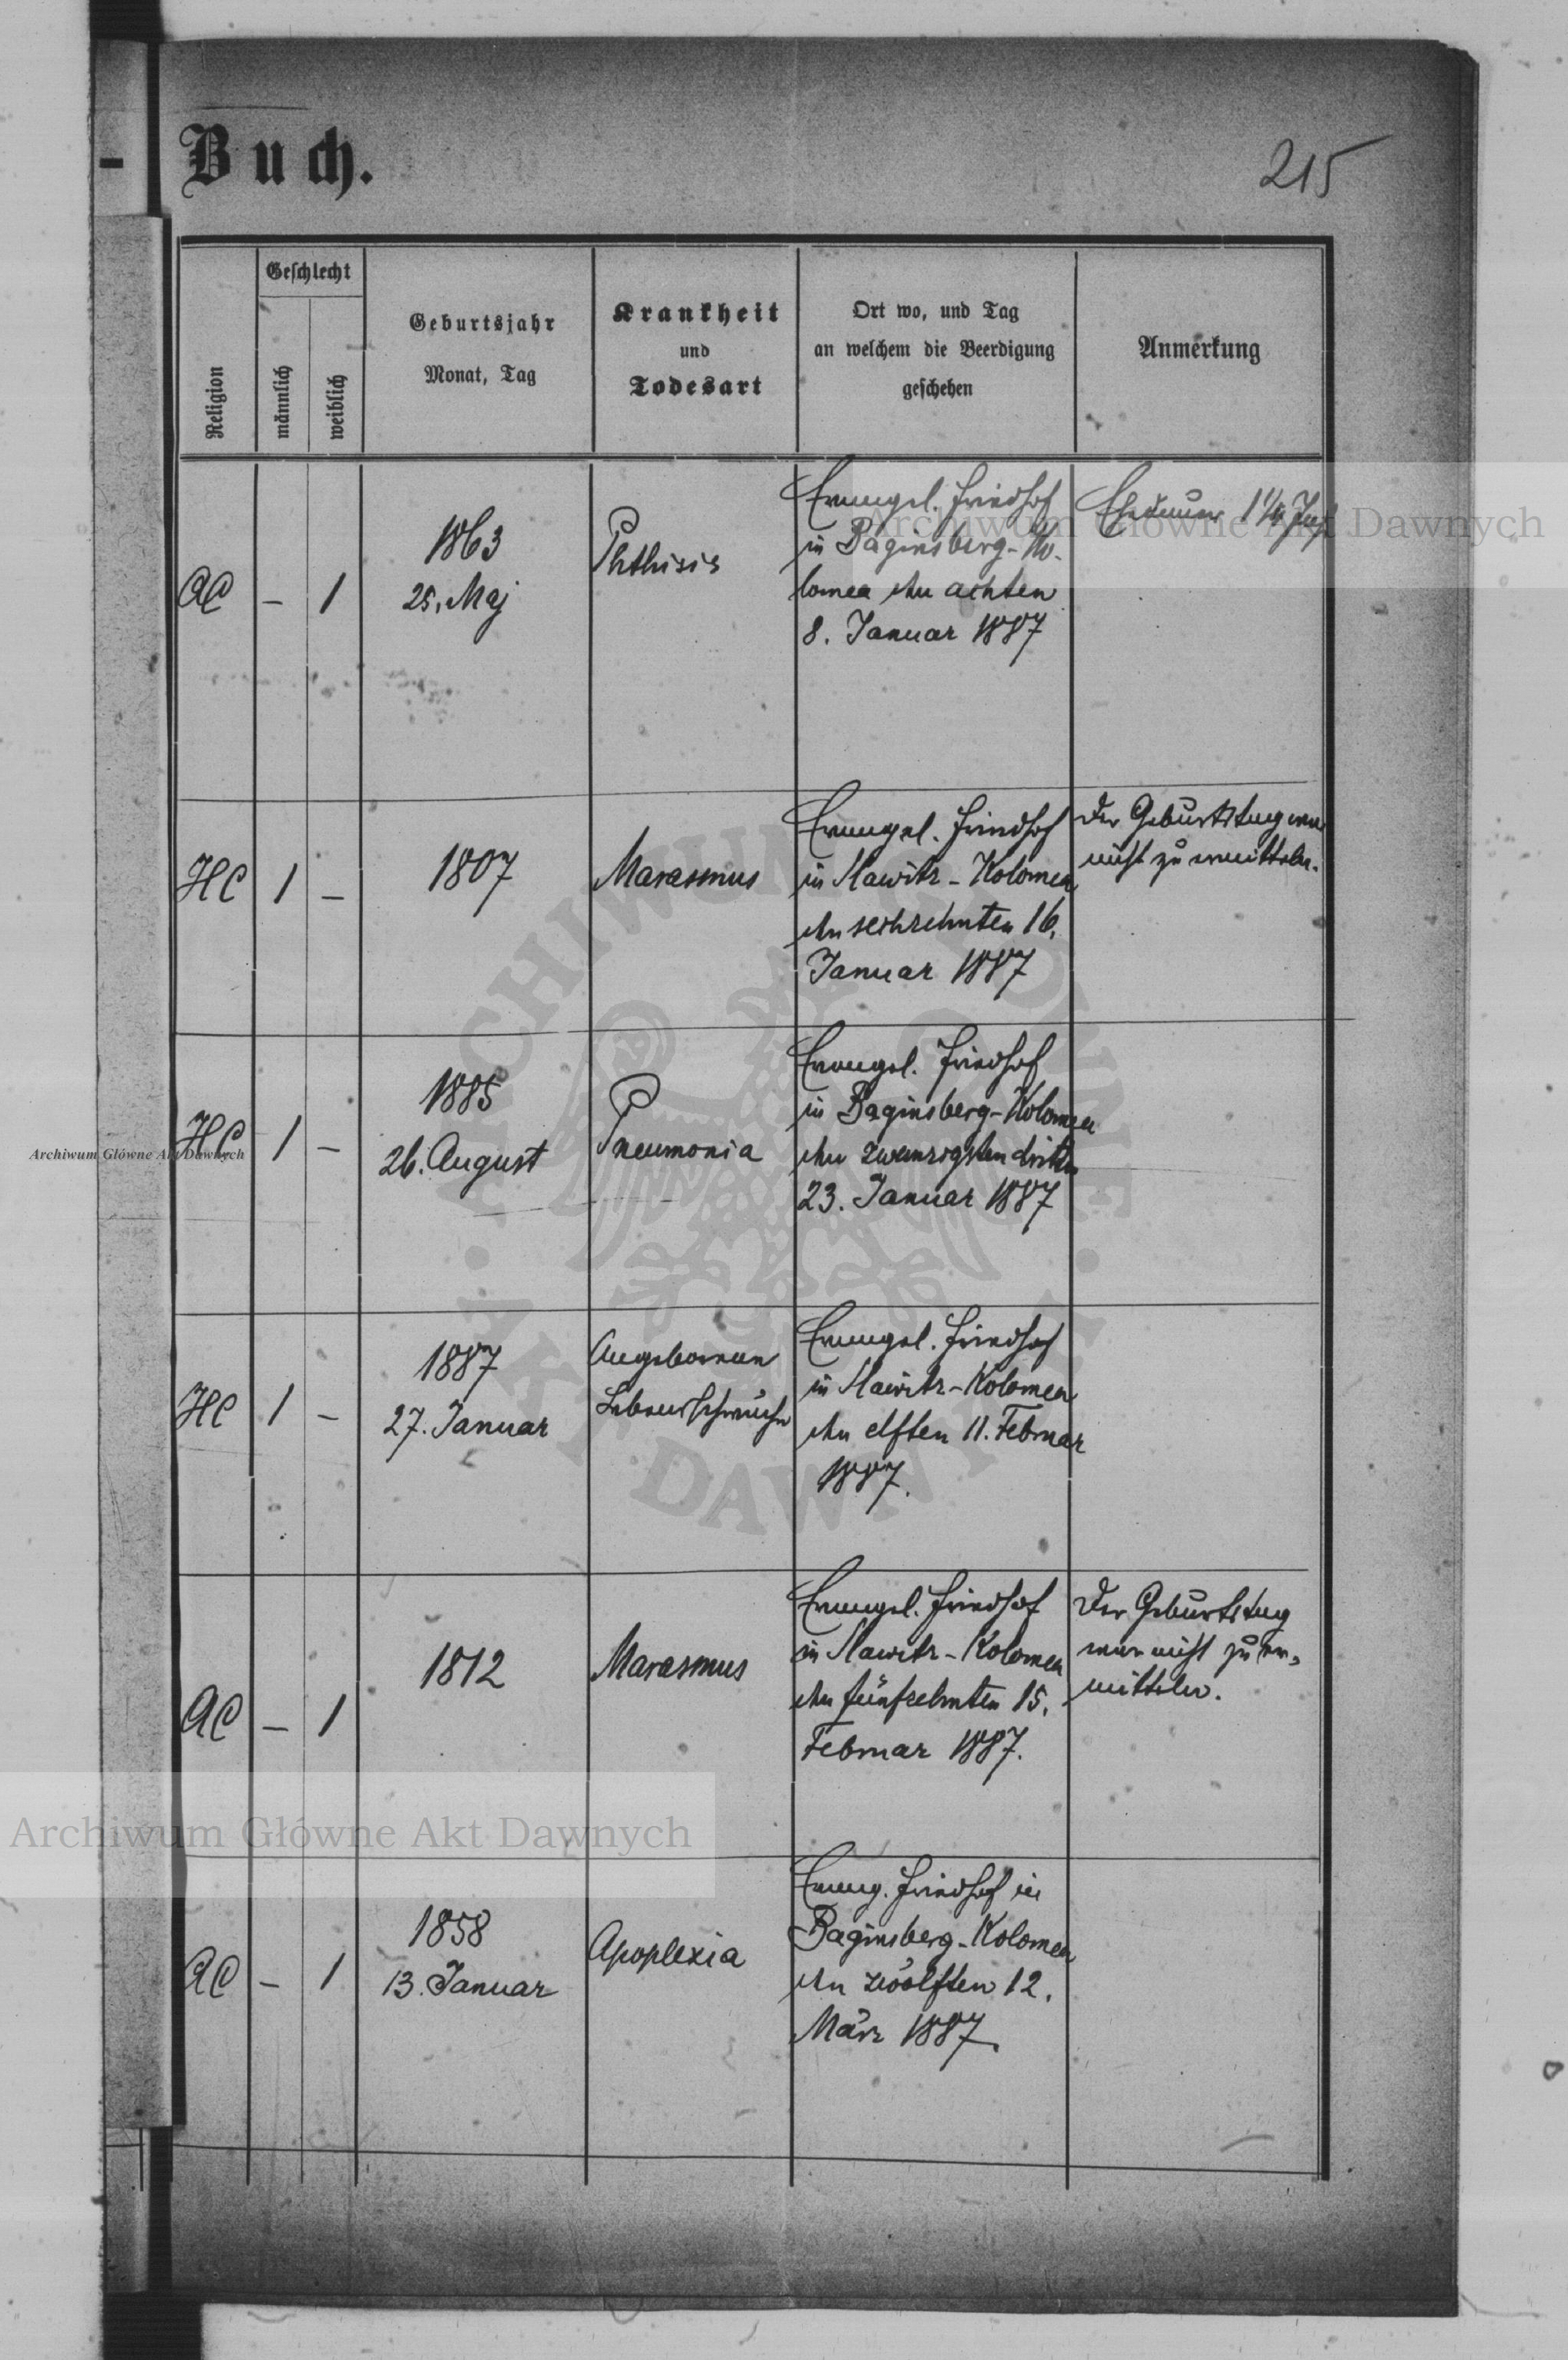 Buch.
215
Religion
Geschlecht
männlich
weiblich
Geburtsjahr
Monat, Tag
Krankheit
und
Todesart
Ort wo, und Tag
an welchem die Beerdigung
geschehen
Anmerkung
AC
–
1
1863
25. Maj
Phthisis
Evangel. Friedhof
in Baginsberg-Ko-
lomea den achten
8. Januar 1887
Ehedauer 1 1/4 Jahr
HC
1
–
1807
Marasmus
Evangel. Friedhof
in Slawitz-Kolomea
den sechzehnten 16.
Januar 1887
Der Geburtstag war
nicht zu ermitteln.
HC
1
–
1885
26. August
Pneumonia
Evangel. Friedhof
in Baginsberg-Kolomea
den zwanzigsten dritten
23. Januar 1887
HC
1
–
1887
27. Januar
Angeborene
Lebensschwäche
Evangel. Friedhof
in Slawitz-Kolomea
den elften 11. Februar
1887.
AC
–
1
1812
Marasmus
Evangel. Friedhof
in Slawitz-Kolomea
den fünfzehnten 15.
Februar 1887.
Der Geburtstag
war nicht zu er=
mitteln.
AC
–
1
1858
13. Januar
Apoplexia
Evang. Friedhof in
Baginsberg-Kolomea
den zwölften 12.
März 1887.
Archiwum Główne Akt Dawnych
Archiwum Główne Akt Dawnych
Archiwum Główne Akt Dawnych